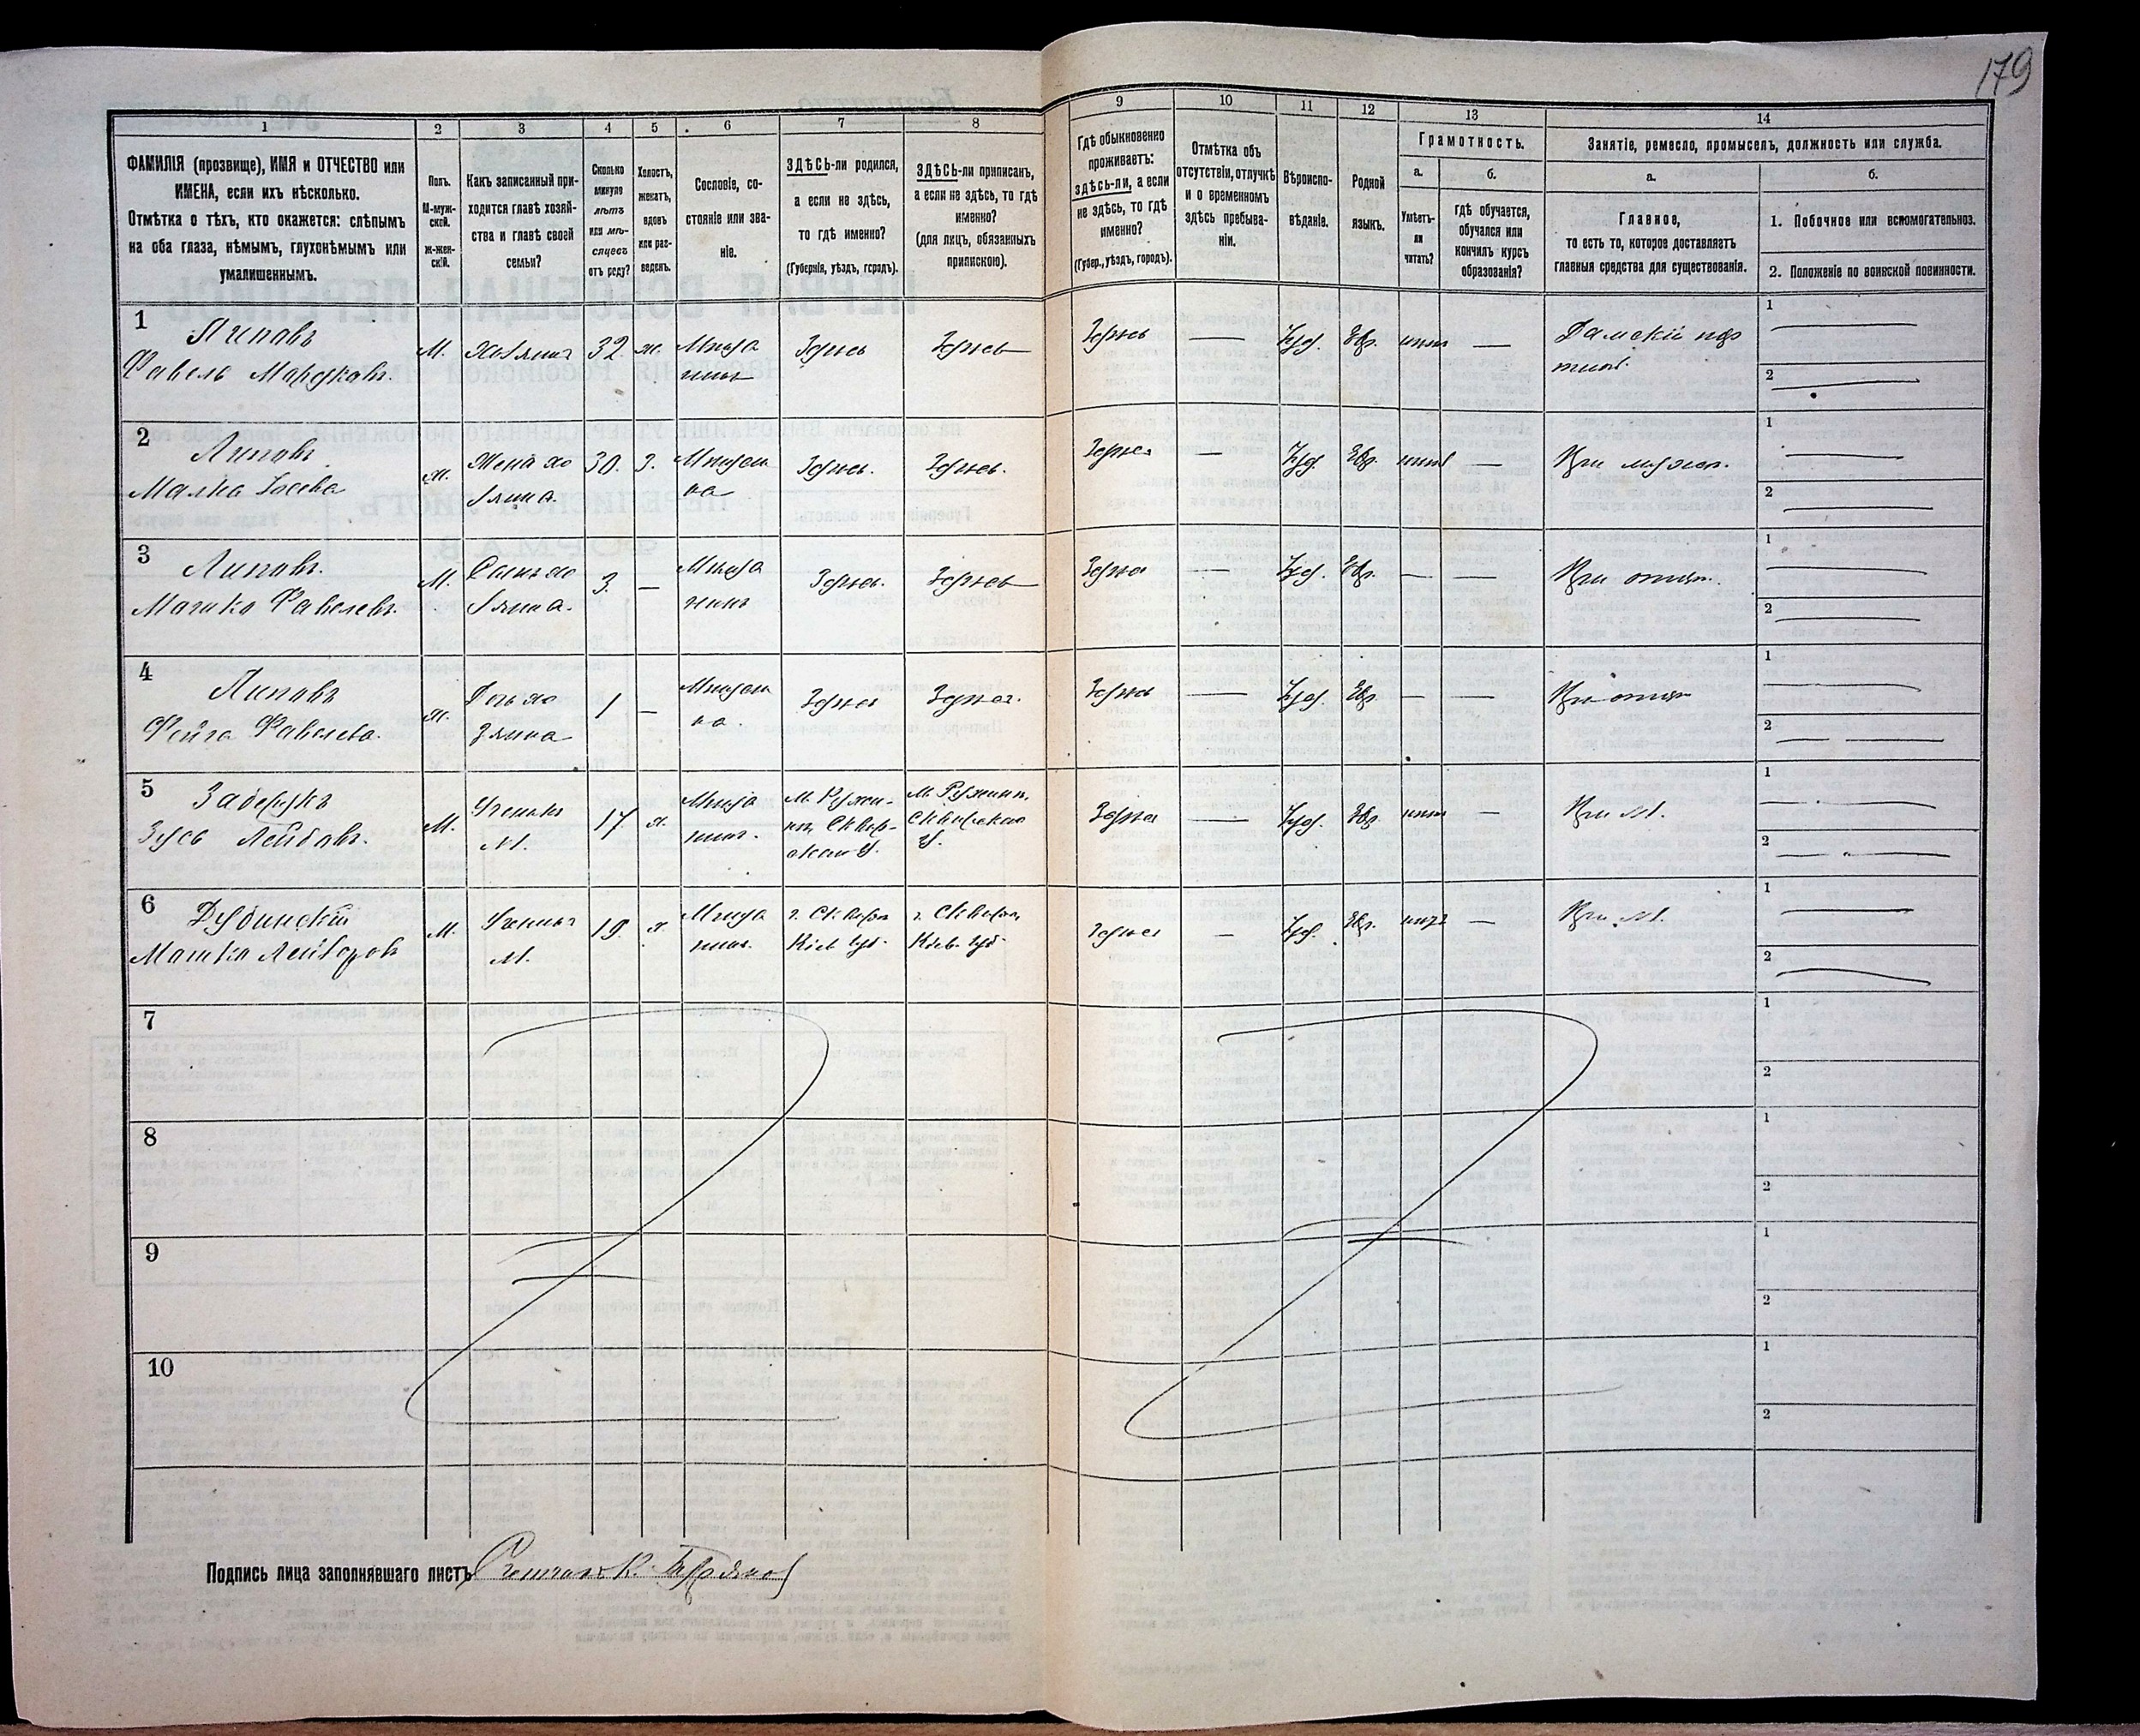 179
1
2
3
4
5
6
7
8
9
10
11
12
13
14
ФАМИЛІЯ (прозвище), ИМЯ и ОТЧЕСТВО или
ИМЕНА, если ихъ нѣсколько.
Отмѣтка о тѣхъ, кто окажется: слѣпымъ
на оба глаза, нѣмымъ, глухонѣмымъ или
умалишеннымъ.
Полъ.
М-муж-
ской.
ж-жен-
скій.
Какъ записанный при-
ходится главѣ хозяй-
ства и главѣ своей
семьи?
Сколько
минуло
лѣтъ
или мѣ-
сяцевъ
отъ роду?
Холостъ,
женатъ,
вдовъ
или раз-
веденъ.
Сословіе, со-
стояніе или зва-
ніе.
ЗДѢСЬ-ли родился,
а если не здѣсь,
то гдѣ именно?
(Губернія, уѣздъ, городъ).
ЗДѢСЬ-ли приписанъ,
а если не здѣсь, то гдѣ
именно?
(для лицъ, обязанныхъ
припискою).
Гдѣ обыкновенно
проживаетъ:
здѣсь-ли, а если
не здѣсь, то гдѣ
именно?
(Губер., уѣздъ, городъ).
Отмѣтка объ
отсутствіи, отлучкѣ
и о временномъ
здѣсь пребыва-
ніи.
Вѣроиспо-
вѣданіе.
Родной
языкъ.
Грамотность.
а.
Умѣетъ-
ли
читать?
б.
гдѣ обучается,
обучался или
кончилъ курсъ
образованія?
Занятіе, ремесло, промыселъ, должность или служба.
а.
Главное,
то есть то, которое доставляетъ
главныя средства для существованія.
б.
1. Побочное или вспомогательное.
2. Положеніе по воинской повинности.
1
Липовъ
Фавель Мордковъ.
М. Хозяинъ 32. ж. Мѣща
нинъ
Здѣсь Здѣсь Здѣсь — Іуд. Евр. — Дамскій пор
тной.
1 —
2 —
2
Липовъ
Малка
ж. Жена хо
зяина. 30. З. Мѣщан
ка Здѣсь. Здѣсь. Здѣсь — Іуд. Евр. — При мужѣ.
1 —
2 —
3
Липовъ.
Мошко Фавелевъ.
М. Сынъ хо
зяина. 3. — Мѣща
нинъ Здѣсь. Здѣсь Здѣсь — Іуд. Евр. — — При отцѣ.
1 —
2 —
4
Липовъ
Фейга Фавелева.
ж. Дочь хо
зяина 1 — Мѣщан
ка. Здѣсь Здѣсь. Здѣсь — Іуд. Евр. — — При отцѣ
1 —
2 —
5
Зусь Лейбовъ.
М. Ученикъ
М. 17 х. Мѣща
нинъ. М. Ружи-
нъ, Сквир-
скаго У. М. Ружинъ,
Сквирскаго
У. Здѣсь — Іуд. Евр. — При М.
1 —
2 —
6
Дубинскій
Мошко
М. Ученикъ
М. 19. х. Мѣща
нинъ. г. Сквира
Кіев. губ. г. Сквира,
Кіев. губ. Здѣсь — Іуд. Евр. — При М.
1 —
2 —
7
1
2
8
1
2
9
1
2
10
1
2
Подпись лица заполнявшаго листъ Счетчикъ К.